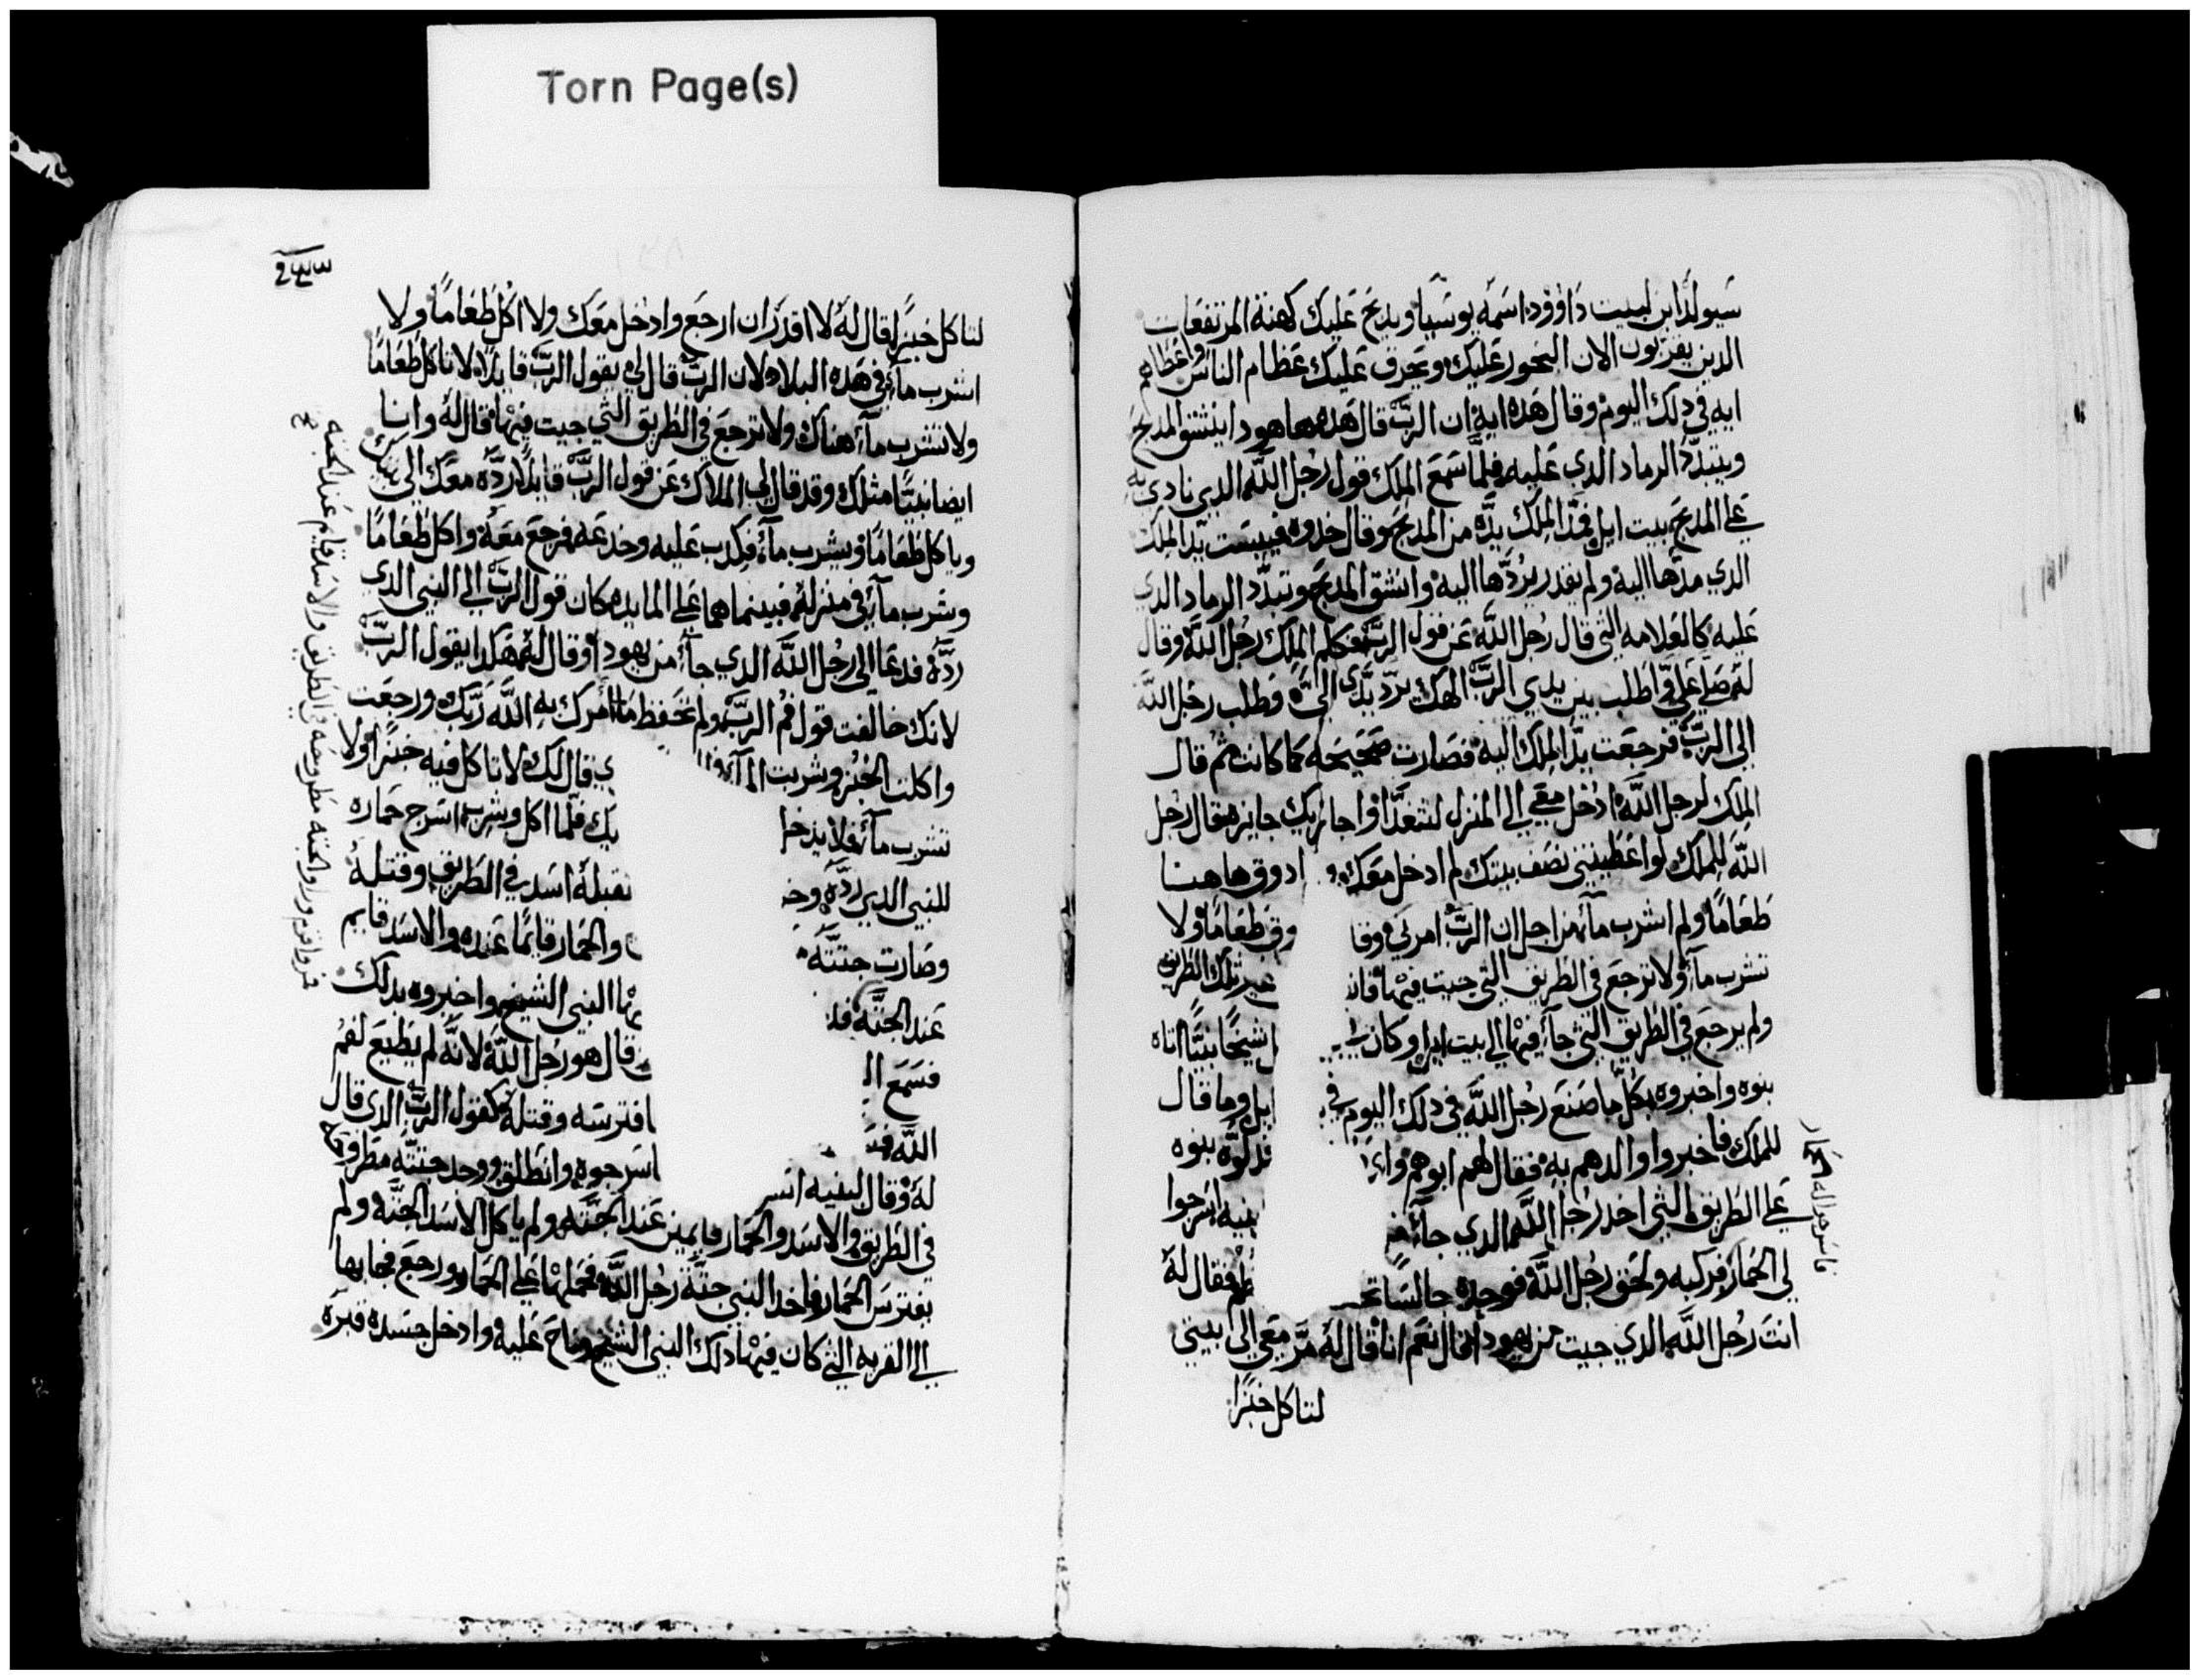 Torn Page(s)
سيولد ابن لبيت داوود اسمه يوسيا ويدبح عليك كهنة المرتفعات
الدين يقربون الان البخور عليك ويحرق عليك عظام الناس واعطاهم
ايه في دلك اليوم وقال هده ايه ان الرب قال هده ها هودا ينشق المدبح
ويتبدد الرماد الدي عليه فلما سمع الملك قول رجل الله الدي نادى به
على المدبح ببيت ايل فمد الملك يده من المدبح وقال خدوه فيبست يد الملك
الدي مدها اليه ولم يقدر يردها اليه وانشق المدبح وتبدد الرماد الدي
عليه كالعلامه التي قال رجل الله عن قول الرب فكلم الملك رجل الله وقال
له صلي علي اطلب بين يدي الرب الهك يرد يدي الي وطلب رجل الله
الى الرب فرجعت يد الملك اليه فصارت صحيحه كما كانت ثم قال
الملك لرجل الله ادخل معي الى المنزل لتتغدا واجايزيك جايزه فقال رجل
الله للملك لو اعطيتني نصف بيتك لم ادخل معك و ادوق هاهنا
طعاما ولم اشرب ماء من اجل ان الرب امرني وقا وق طعاما ولا
تشرب ماء ولا ترجع في الطريق التي جيت فيها فان غير تلك الطريق
ولم يرجع في الطريق التي جاء فيها الى بيت ايل وكان شيخا نبيا اتاه
بنوه واخبروه بكل ما صنع رجل الله في دلك اليوم في ايل وما قال
للملك فاخبروا والدهم به فقال لهم ابوهم وا فدلوه بنوه
على الطريق التي اخد رجل الله الدي جاء بنيه اسرجوا
لي الحمار فركبه ولحق رجل الله فوجده جالسا فقال له
انت رجل الله الدي جيت من يهودا فقال نعم انا قال له مر معي الى بيتي
لتاكل خبزا
فاسرجوا له الحمار
لتاكل خبزا فقال له لا اقدر ان ارجع وادخل معك ولا اكل طعاما ولا
اشرب ماء في هده البلاد لان الرب قال لي بقول الرب قايلا لا تاكل طعاما
ولا تشرب ماء هناك ولا ترجع في الطريق التي جيت فيها قال له وانا
ايضا نبيا مثلك وقد قال لي الملاك عن قول الرب قايلا رده معك الى بيتك
وياكل طعاما ويشرب ماء فكدب عليه وخدعه فرجع معه واكل طعاما
وشرب ماء في منزله فبينما هما على المايده كان قول الرب الى النبي الدي
رده فدعا الى رجل الله الدي جاء من يهودا وقال له هكدا يقول الرب
لانك خالفت قول فم الرب ولم تحفظ ما امرك به الله ربك ورجعت
واكلت الخبز وشربت الماء ي قال لك لا تاكل فيه خبزا ولا
تشرب ماء فلا يدخل يك فلما اكل وشرب اسرج حماره
للنبي الدي رده وخ تقبله اسد في الطريق وقتله
وصارت جثته والحمار قايما عنده والاسد قايم
عند الجثه فد ها النبي الشيخ واخبروه بدلك
فسمع ال قال هو رجل الله لانه لم يطيع لفم
الله فد افترسه وقتله كقول الرب الدي قال
له وقال لبنيه اسر اسرجوه وانطلق ووجد جثته مطروحه
في الطريق والاسد والحمار قايمين عند الجثه ولم ياكل الاسد الجثه ولم
يفترس الحمار فاخد النبي جثة رجل الله فحملها على الحمار ورجع فجابها
الى القريه التي كان فيها دلك النبي الشيخ وناح عليه وادخل جسده قبره
فروا قوم وراوا الجثه مطروحه في الطريق والاسد قايم عند الجثه